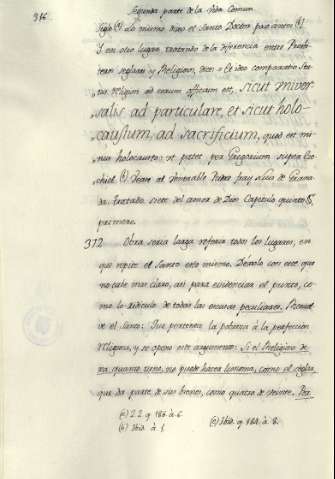 316. Segunda parte de la Vida Comun.
siglo (a) Lo mismo dice el Santo Doctor
Y en otro lugar, tratando de la diferencia entre Presbitero
seglar y Religioso, dice: Et ideo comparatio
ad eorum officium est, sicut univer-
salis ad particulare, et sicut holo-
caustum, ad sacrificium, quod est mi-
nus holocausto: ut patet per Gregorium super Eze-
chiel. (c) Vease al Venerable Padre fray Luis de Grana-
da Tratado siete del amor de Dios Capitulo quinto §
primero.
312 Obra seria larga referir todos los lugares, en
que repite el Santo esto mismo. Dexolo con este que
no cabe mas claro, asi para evidenciar el punto, co-
mo lo ridiculo de todas las escusas peculiares. Prome-
ve el Santo: Sie pertenece la pobreza à la perfeccion
Religiosa, y se opone este argumento: Si el Religioso de-
xa quanto tiene, no puede hacer limosna, como el seglar,
que da parte de sus bienes, como quatro de veinte. Res-
(a) 2.2. q. 186. à 6.
(b) Ibid. à 1.
(c) Ibid. q. 184. à 8.